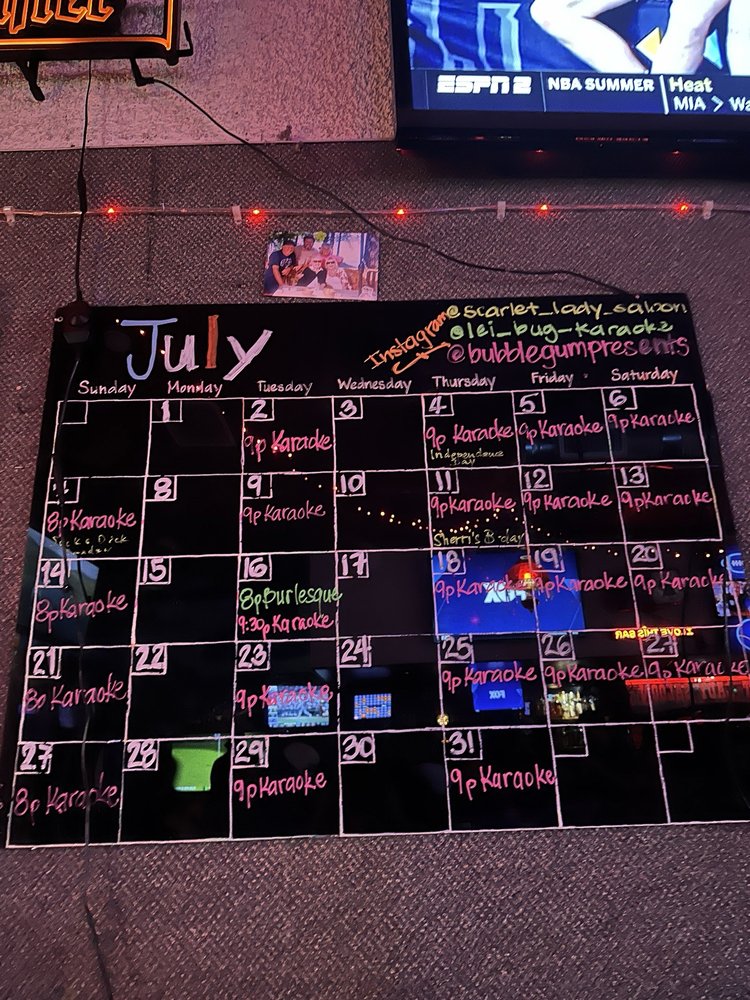 ESPN 2 NBA SUMMER Heat
MIA > Wa
July
Instagram
@scarlet_lady_saloon
@lei_bug_karaoke
@bubblegumpresents
Sunday Monday Tuesday Wednesday Thursday Friday Saturday
1 2 3 4 5 6
9p Karaoke 9p Karaoke 9p Karaoke 9p Karaoke
Independence
Day
8 9 10 11 12 13
8p Karaoke 9p Karaoke 9p Karaoke 9p Karaoke 9p Karaoke
Sherri's B-day
14 15 16 17 18 19 20
8p Karaoke 8p Burlesque 9p Karaoke 9p Karaoke 9p Karaoke
9:30p Karaoke
21 22 23 24 25 26 27
8p Karaoke 9p Karaoke 9p Karaoke 9p Karaoke 9p Karaoke
27 28 29 30 31
8p Karaoke 9p Karaoke 9p Karaoke